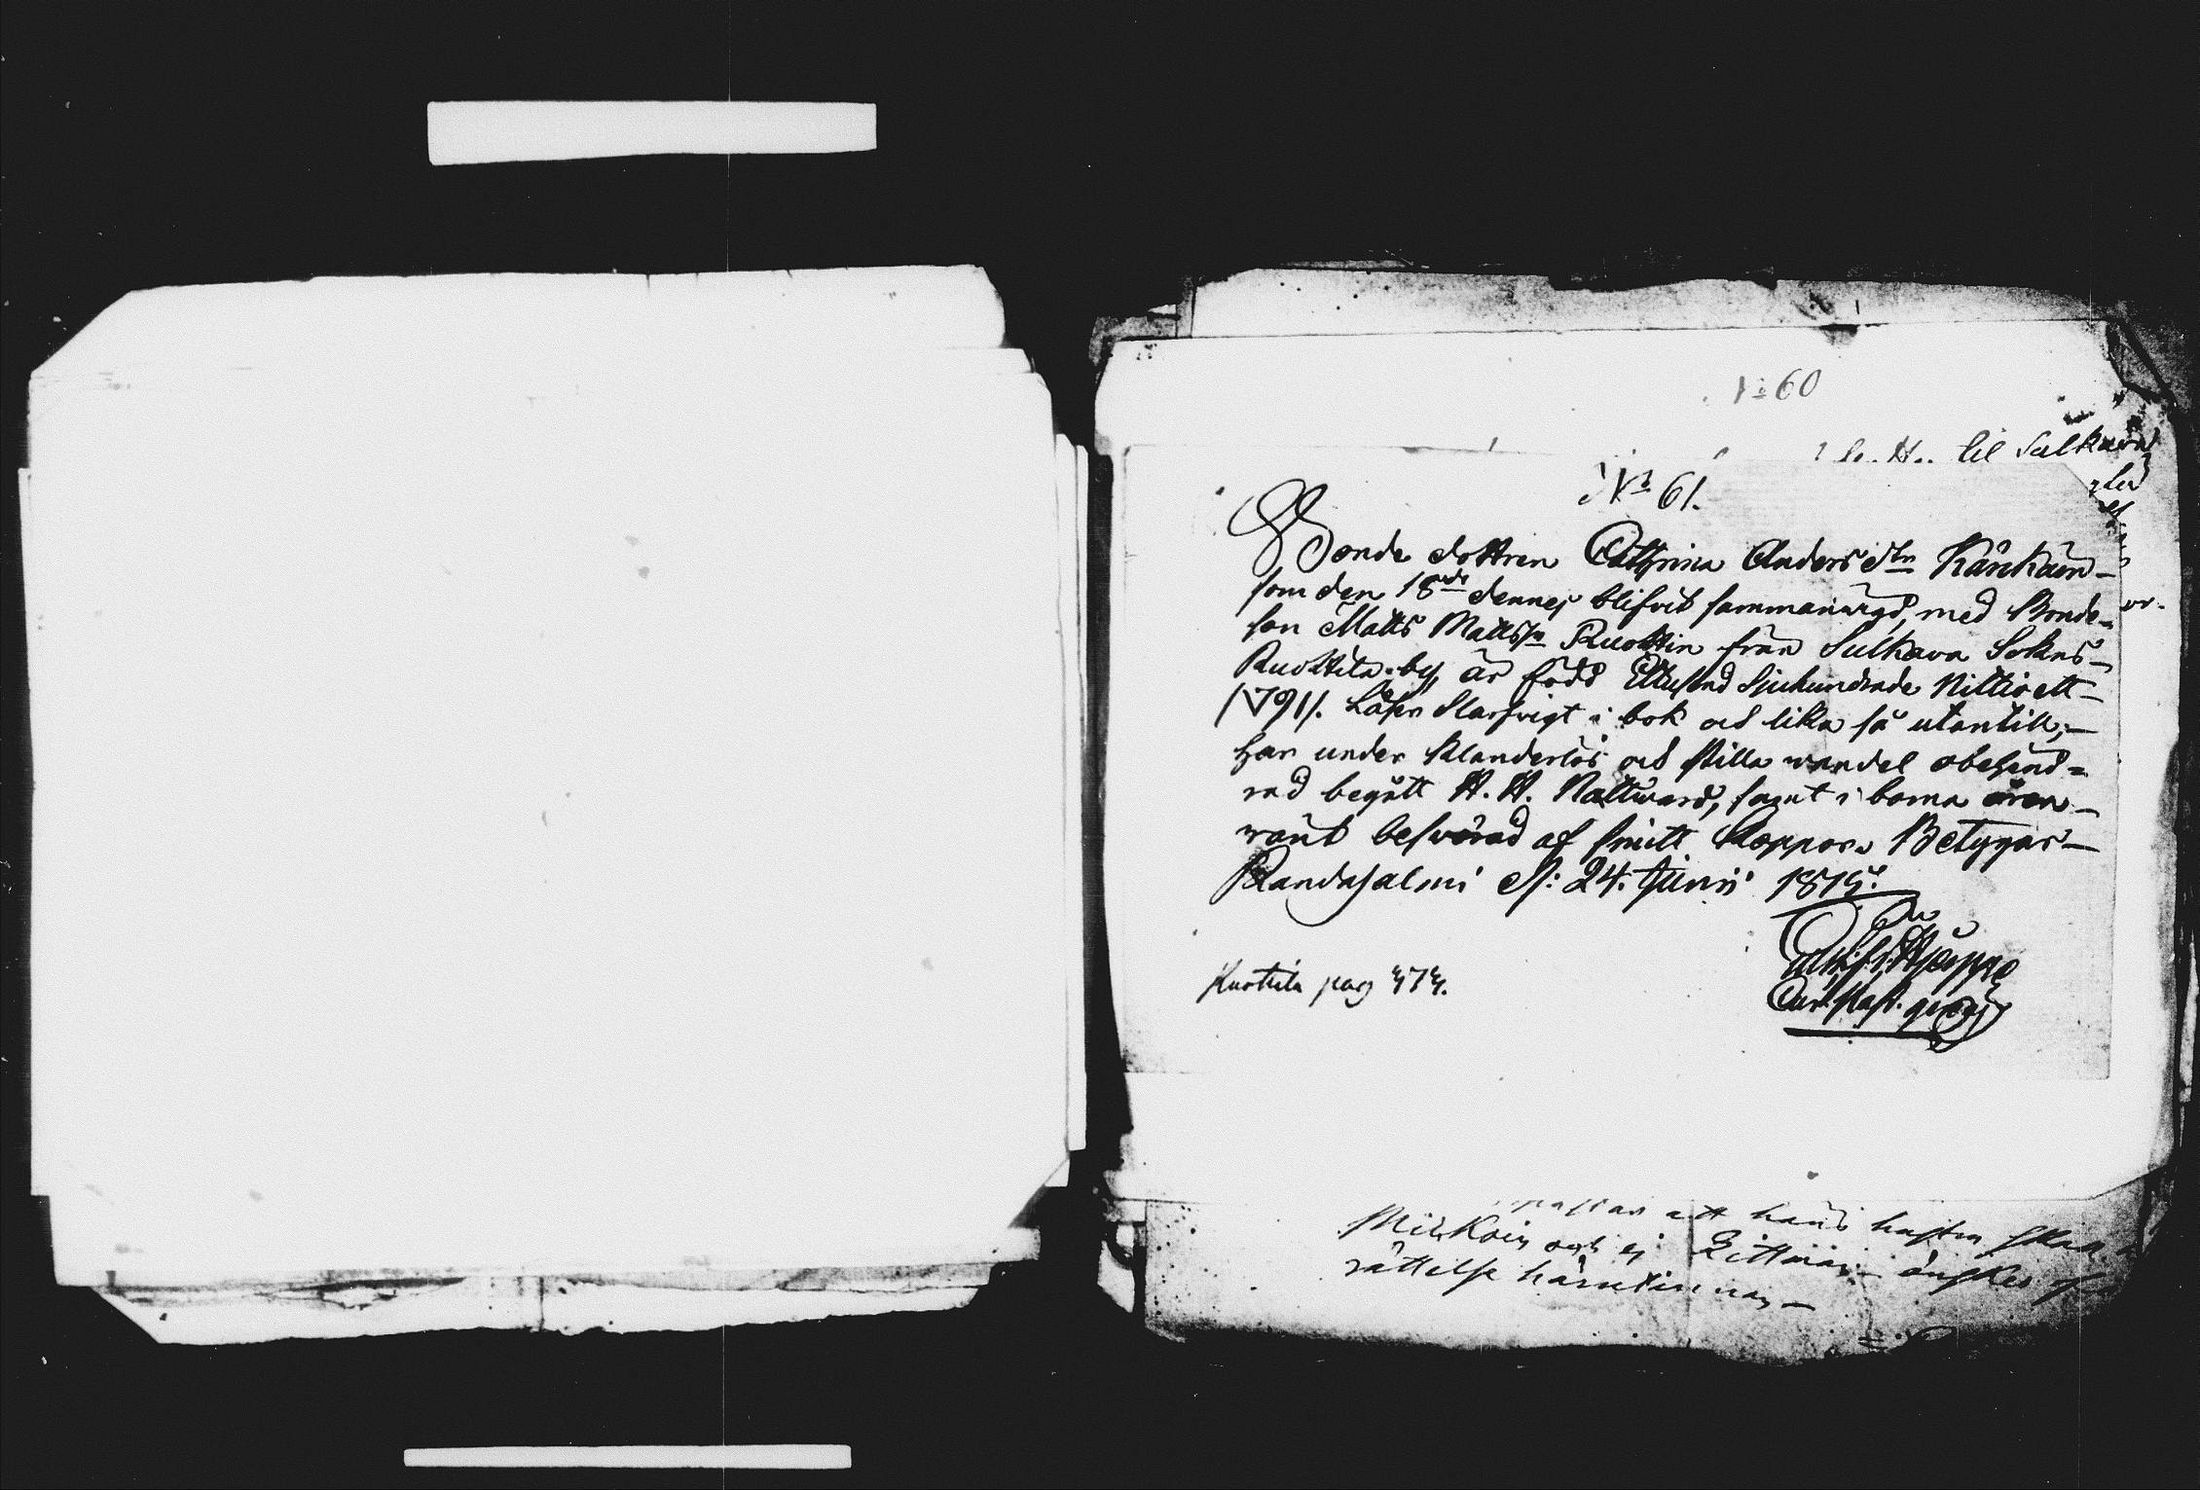 No 60
til Sulkava
No 61.
Bonde dottren Cathrina Anders dtr Känkäin-
som den 18de dennes blifvit sammanvigd, med Bonde-
son Matts Mattsn Ruottin från Sulkava Sokns-
Ruottila by, är född Ettusend Sjuhundrade Nittioett-
/1791/. Läser Slarfvigt i bok och lika så utantill,-
har under klanderlös och stilla wandel obehind=
rad begått H. H. Nattward, samt i barna åren-
want besvärad af smitt koppor. Betygar-
Randasalmi d: 24. Junii 1815.
Kuottila pag 474.
att hans hustru skall
och ej önskes
rättelse härutinnan-